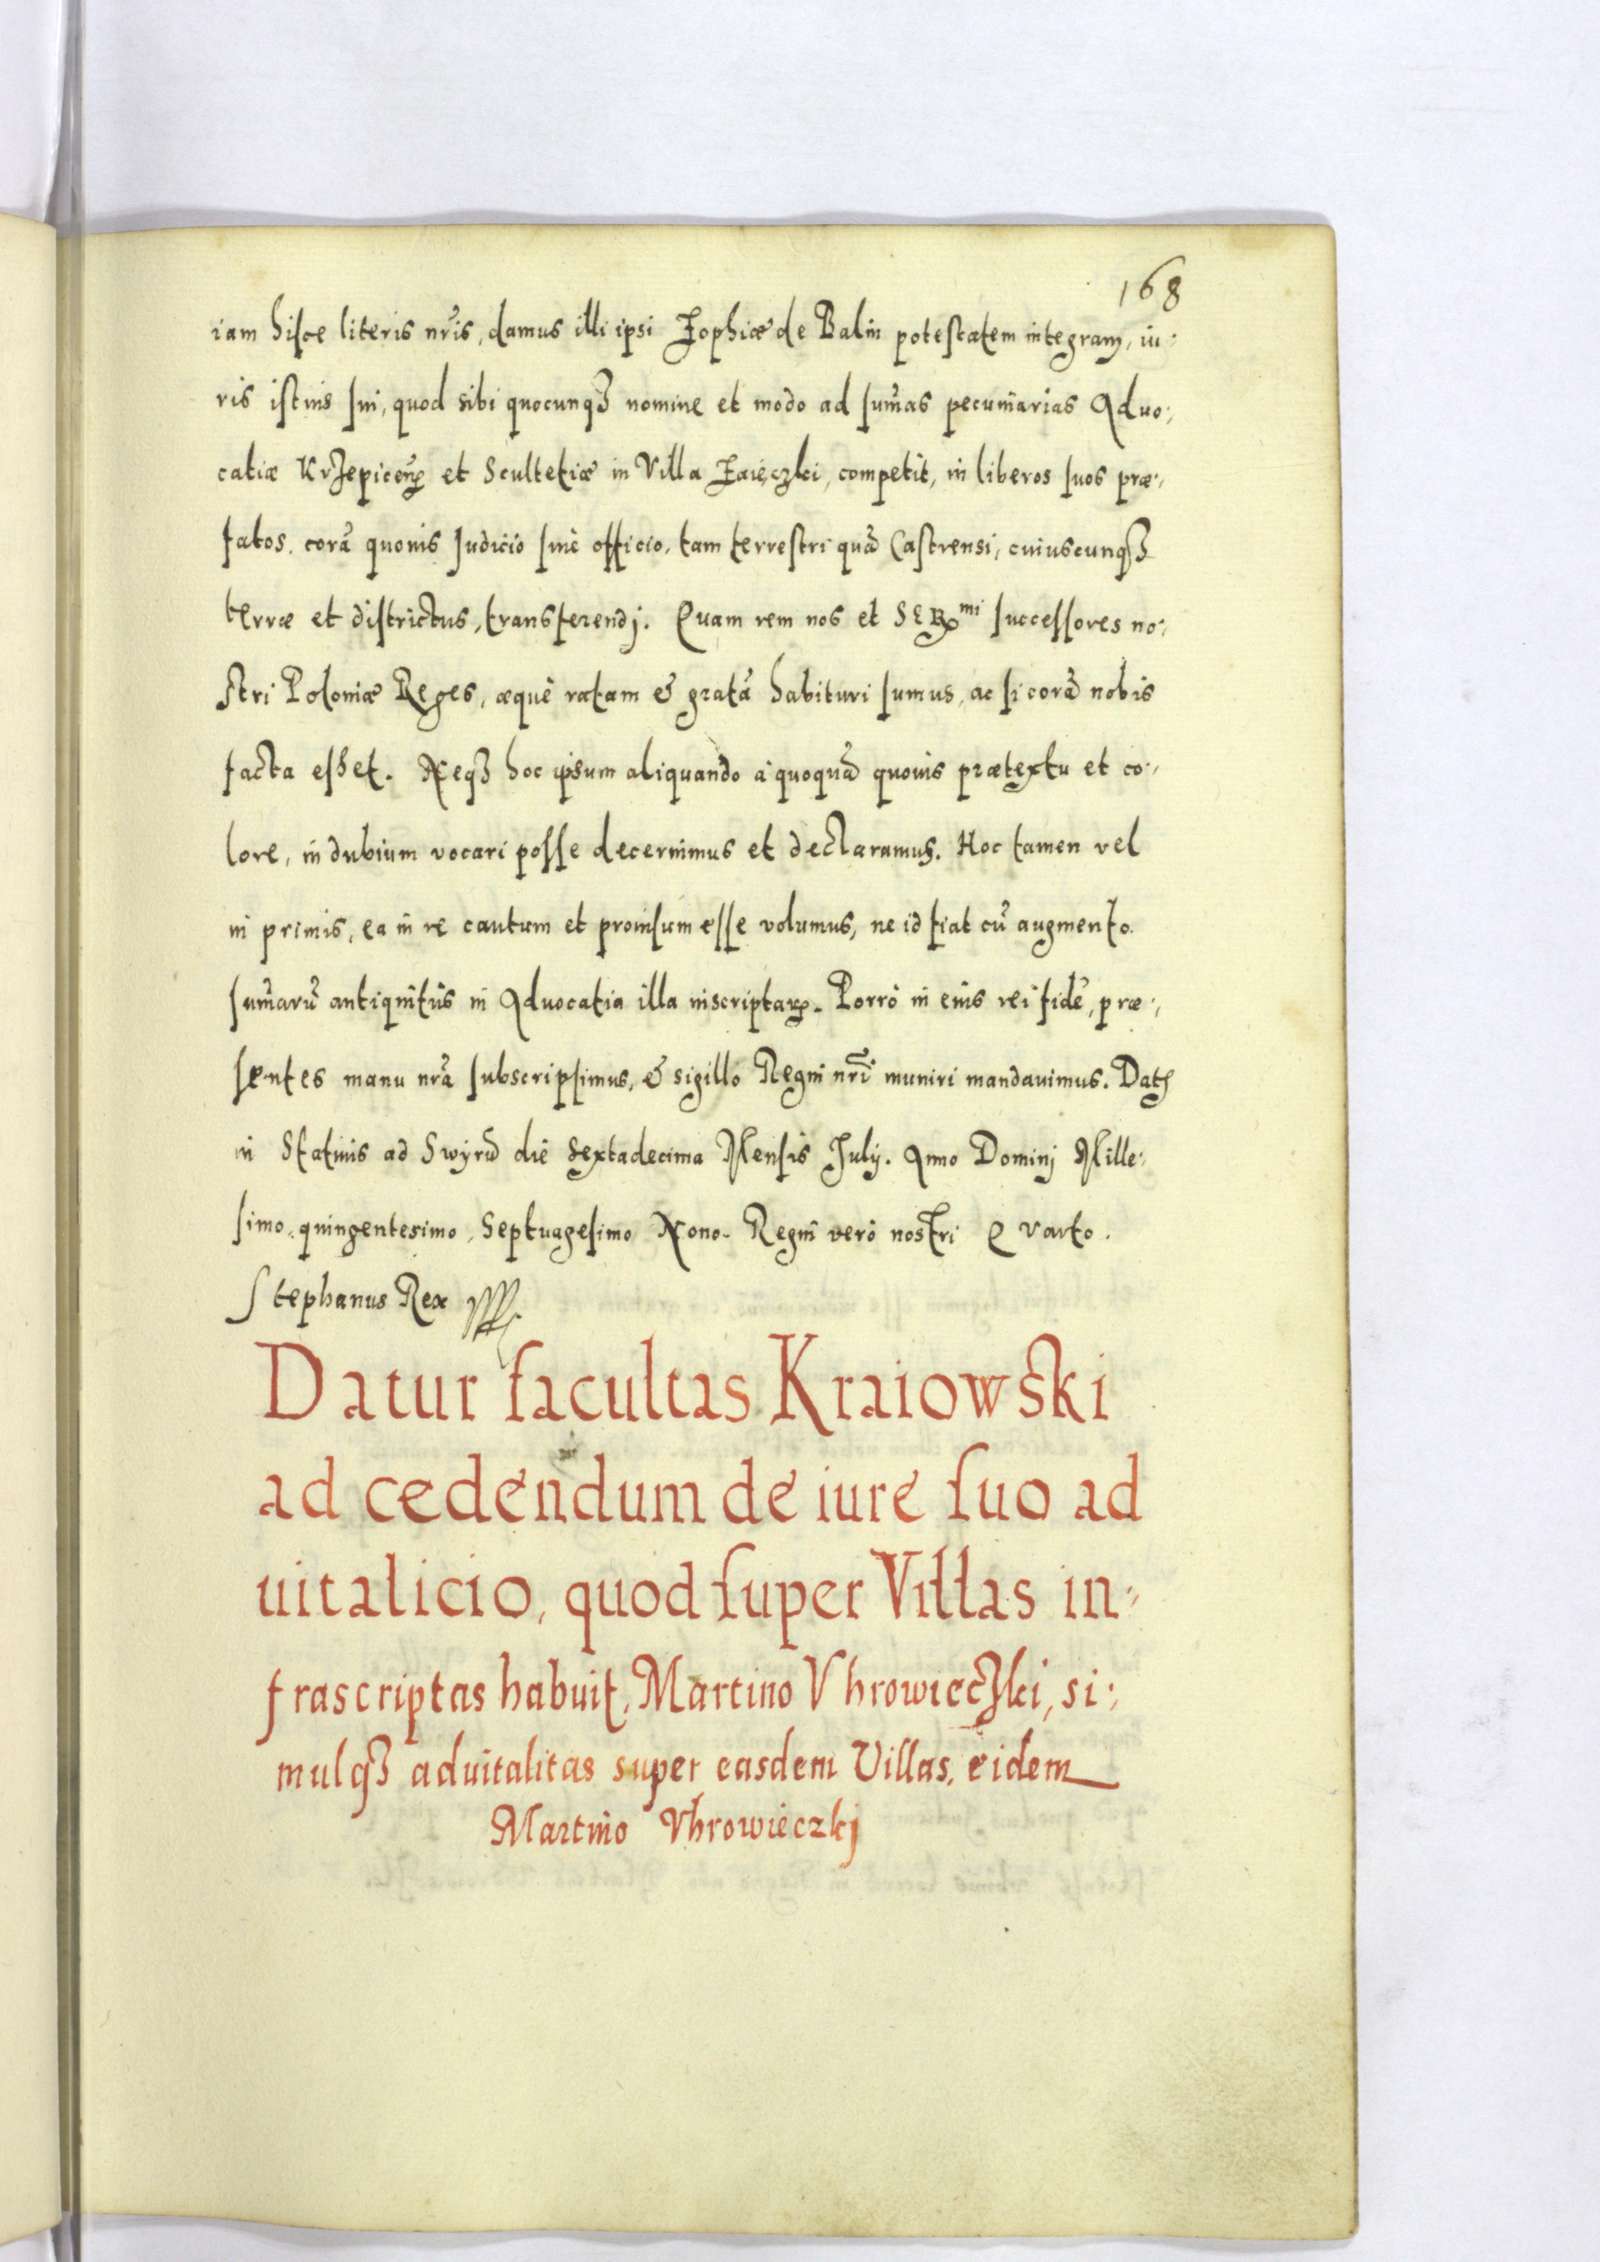 168
iam hisce literis nr̃is, damus illi ipsi Zophiæ de Balin potestatem integram, iu-
ris istius sui, quod sibi quocunqꝫ nomine et modo ad sum̃as pecuniarias Aduo-
catiæ Krzepiceñ et Scultetiæ in Villa Zaięczki, competit, in liberos suos præ-
fatos, corã quouis Iudicio siuè officio, tam terrestri quã Castrensi, cuiuscunqꝫ
terræ et districtus, transferendj. Quam rem nos et Ser^mi successores no-
stri Poloniæ Reges, æquè ratam & gratã habituri sumus, ac si corã nobis
facta esset. Neqꝫ hoc ipsum aliquando à quoquã quouis prætextu et co-
lore, in dubium vocari posse decernimus et declaramus. Hoc tamen vel
in primis, ea in re cautum et prouisum esse volumus, ne id fiat cũ augmento
sum̃arũ antiquitùs in Aduocatia illa inscriptaꝝ. Porrò in eius rei fidẽ, præ-
sentes manu nr̃a subscripsimus, & sigillo Regni nr̃i muniri mandauimus. Datꝭ
in Statiuis ad Swyrũ die sextadecima Mensis Julij. Anno Dominj Mille-
simo, quingentesimo, Septuagesimo Nono. Regni verò nostri Quarto.
Stephanus Rex
Datur facultas Kraiowski
ad cedendum de iure suo ad
uitalicio, quod super Villas in-
frascriptas habuit, Martino Vhrowieczki, si-
mulqꝫ aduitalitas super easdem Villas, eidem
Martino Vhrowieczkj